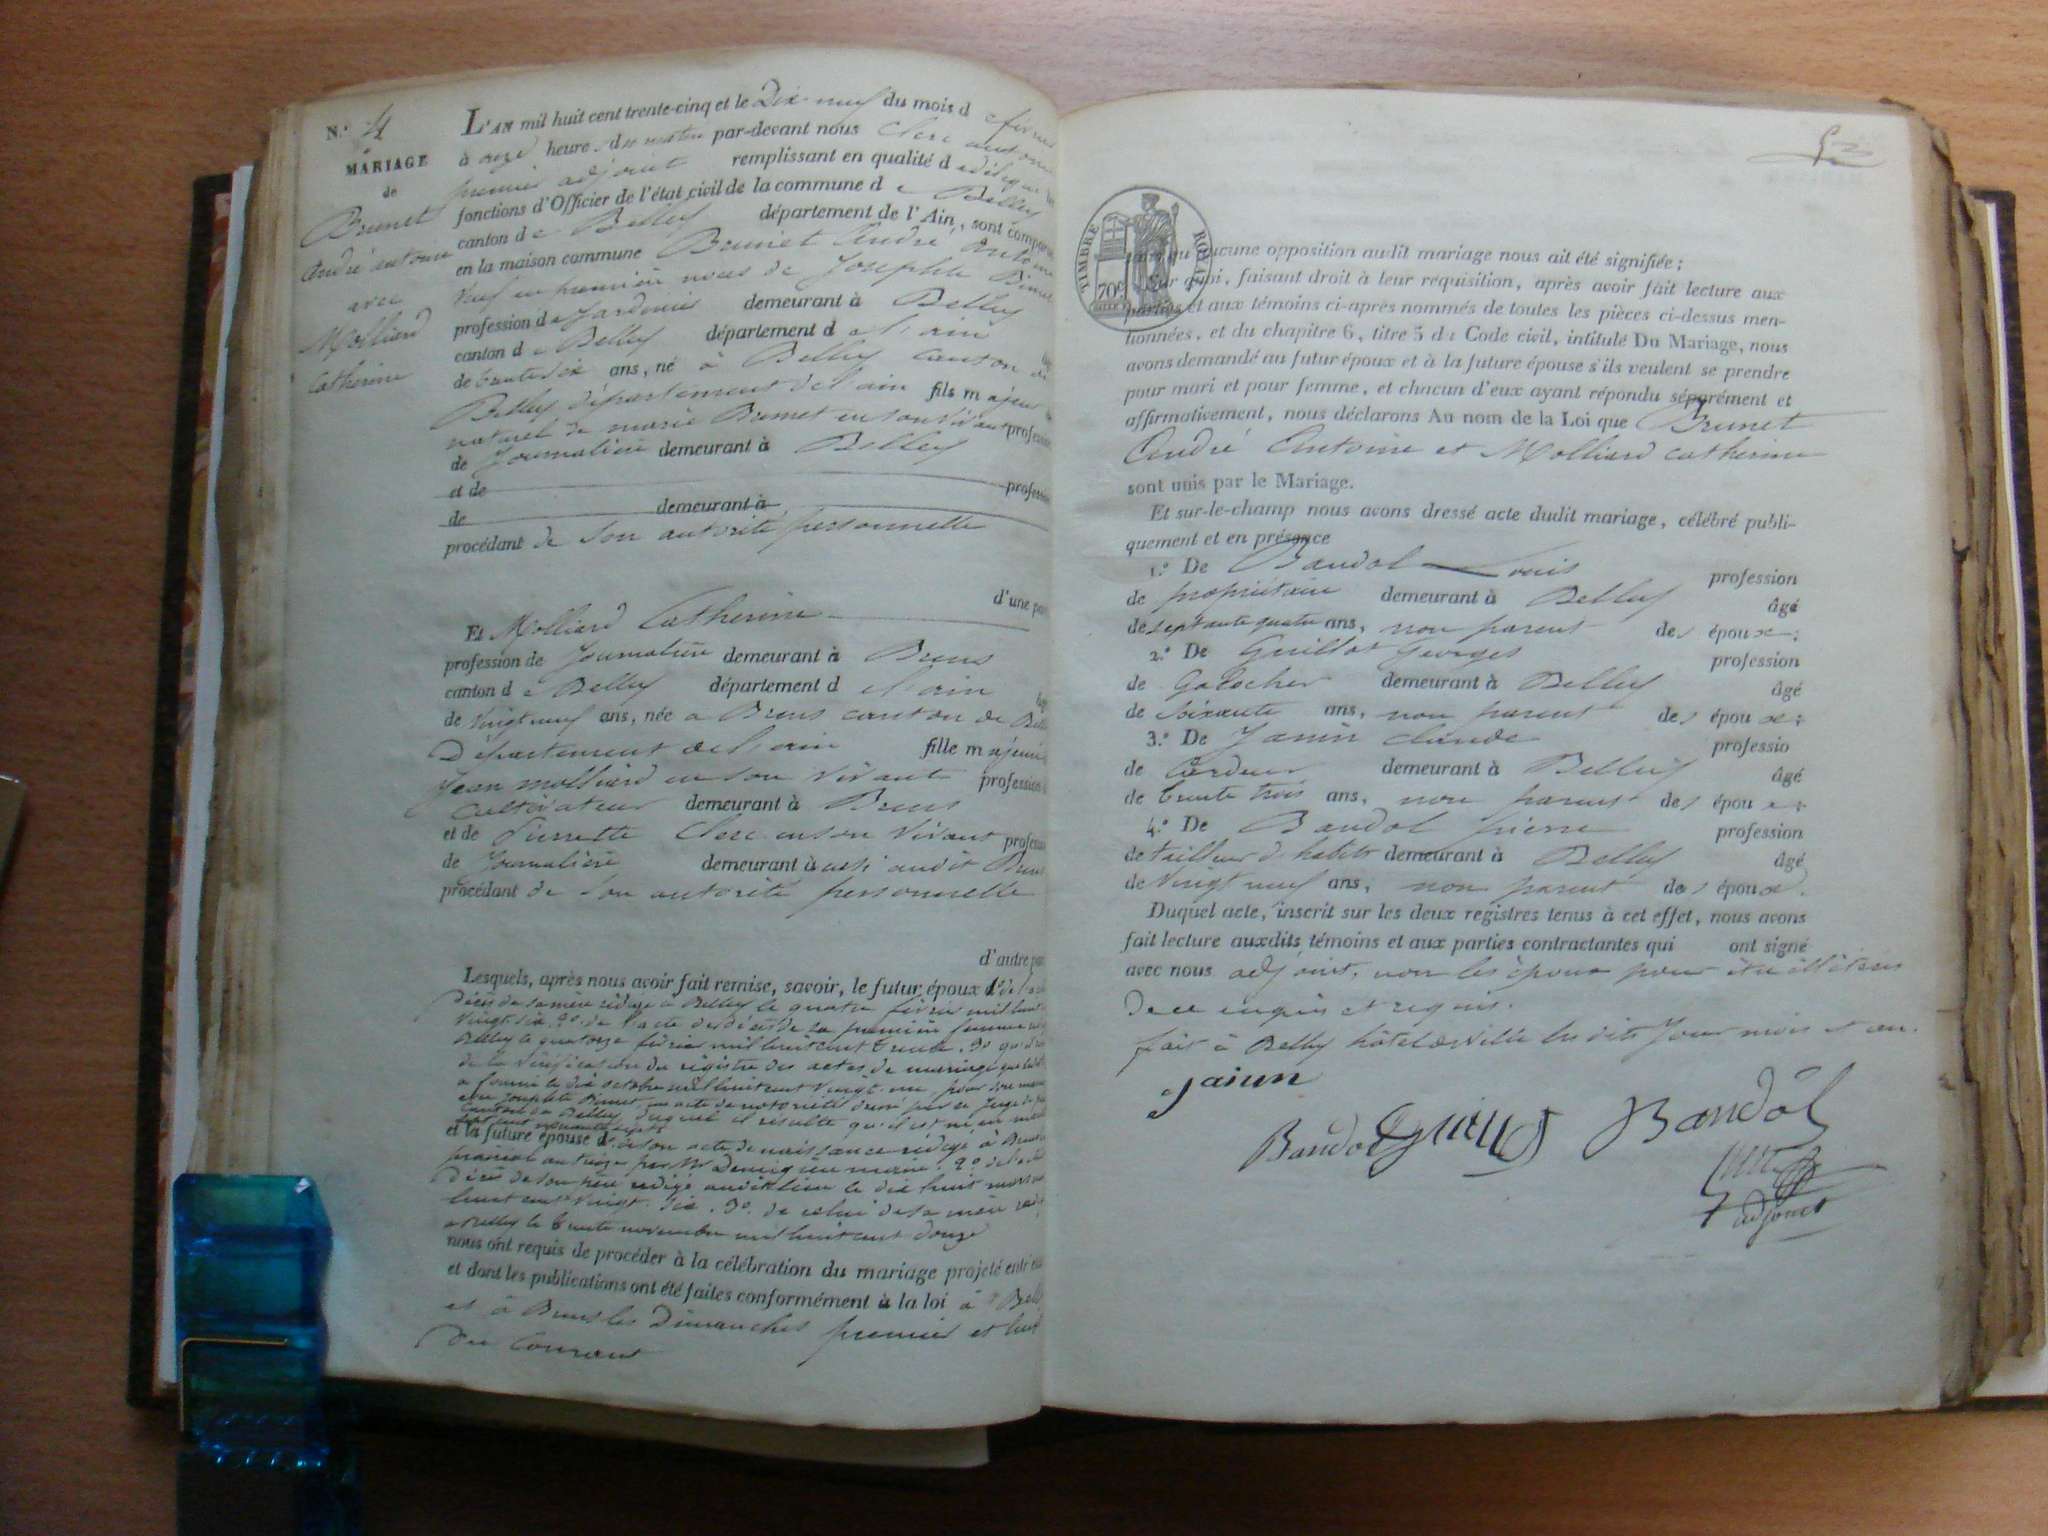 N.º 4
MARIAGE
de
Brunet
André antoine
avec
Molliard
Catherine
L'AN mil huit cent trente-cinq et le Dix-neuf du mois d e février
à onze heures du matin par-devant nous Clerc antoine
premier adjoint remplissant en qualité d e délégué les
fonctions d'Officier de l'état civil de la commune d e Belley
canton d e Belley département de l'Ain, sont comparus
en la maison commune Brunet André Antoine
veuf en première noces de Josephte
profession d e Jardinier demeurant à Belley
canton d e Belley département d e l'ain
de trente six ans, né à Belley Canton de
Belley département de l'ain fils majeur
naturel de marie Brunet en son vivant profession
de Journalière demeurant à Belley
et de profession
de demeurant à
procédant de son autorité personnelle
d'une part
Et Molliard Catherine
profession de Journalière demeurant à Brens
canton d e Belley département d e l'ain
de vingt neuf ans, née a Brens canton de Belley
Département de l'ain fille majeure
Jean molliard en son vivant profession
Cultivateur demeurant à Brens
et de Pierrette Clerc en son vivant profession
de Journalière demeurant à audit Brens
procédant de son autorité personnelle
d'autre part
Lesquels, après nous avoir fait remise, savoir, le futur époux 1º de l'acte
décès de sa mère rédigé à Belley le quatre février mil huit
vingt six, 2º de l'acte de décès de sa première femme
Belley le quatorze février mil huit cent trente. 3º
de la vérification du registre des actes de mariage
le dix octobre mil huit cent vingt un pour son
acte de notoriété par le Juge de
Canton de Belley, duquel il résulte qu'il est né en
et la future épouse 1º de son acte de naissance rédigé à Brens
prairial an treize par Mr maire. 2º de l'acte
Décès de son père rédigé audit lieu le dix huit mars
huit cent vingt six. 3º de celui de sa mère
a Belley le trente novembre mil huit cent douze
nous ont requis de procéder à la célébration du mariage projeté entr'eux
et dont les publications ont été faites conformément à la loi à Belley
et à Brens les Dimanches premier et huit
du Courant
52
TIMBRE ROYAL
70c
qu'aucune opposition audit mariage nous ait été signifiée;
Sur quoi, faisant droit à leur requisition, après avoir fait lecture aux
parties et aux témoins ci-après nommés de toutes les pièces ci-dessus men-
tionnées, et du chapitre 6, titre 5 du Code civil, intitulé Du Mariage, nous
avons demandé au futur époux et à la future épouse s'ils veulent se prendre
pour mari et pour femme, et chacun d'eux ayant répondu séparément et
affirmativement, nous déclarons Au nom de la Loi que Brunet
André Antoine et Molliard Catherine
sont unis par le Mariage.
Et sur-le-champ nous avons dressé acte dudit mariage, célébré publi-
quement et en présence
1.º De Baudol Louis profession
de propriétaire demeurant à Belley âgé
de septante quatre ans, non parent des époux;
2.º De Guillot Georges profession
de Galocher demeurant à Belley âgé
de soixante ans, non parent des époux;
3.º De Janin Claude professio
de Cardeur demeurant à Belley âgé
de trente trois ans, non parent des époux;
4.º De Baudol pierre profession
de tailleur d'habits demeurant à Belley âgé
de vingt neuf ans, non parent des époux.
Duquel acte, inscrit sur les deux registres tenus à cet effet, nous avons
fait lecture auxdits témoins et aux parties contractantes qui ont signé
avec nous adjoint, non les époux pour être illitérés
de ce enquis et requis.
fait à Belley hôtel de ville les dits Jour mois et an.
Janin
Baudol Guillot Baudol
Clerc
adjoint